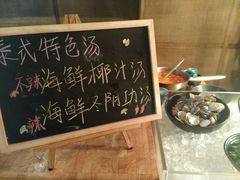 泰式特色汤
不辣海鲜椰汁汤
辣海鲜冬阴功汤